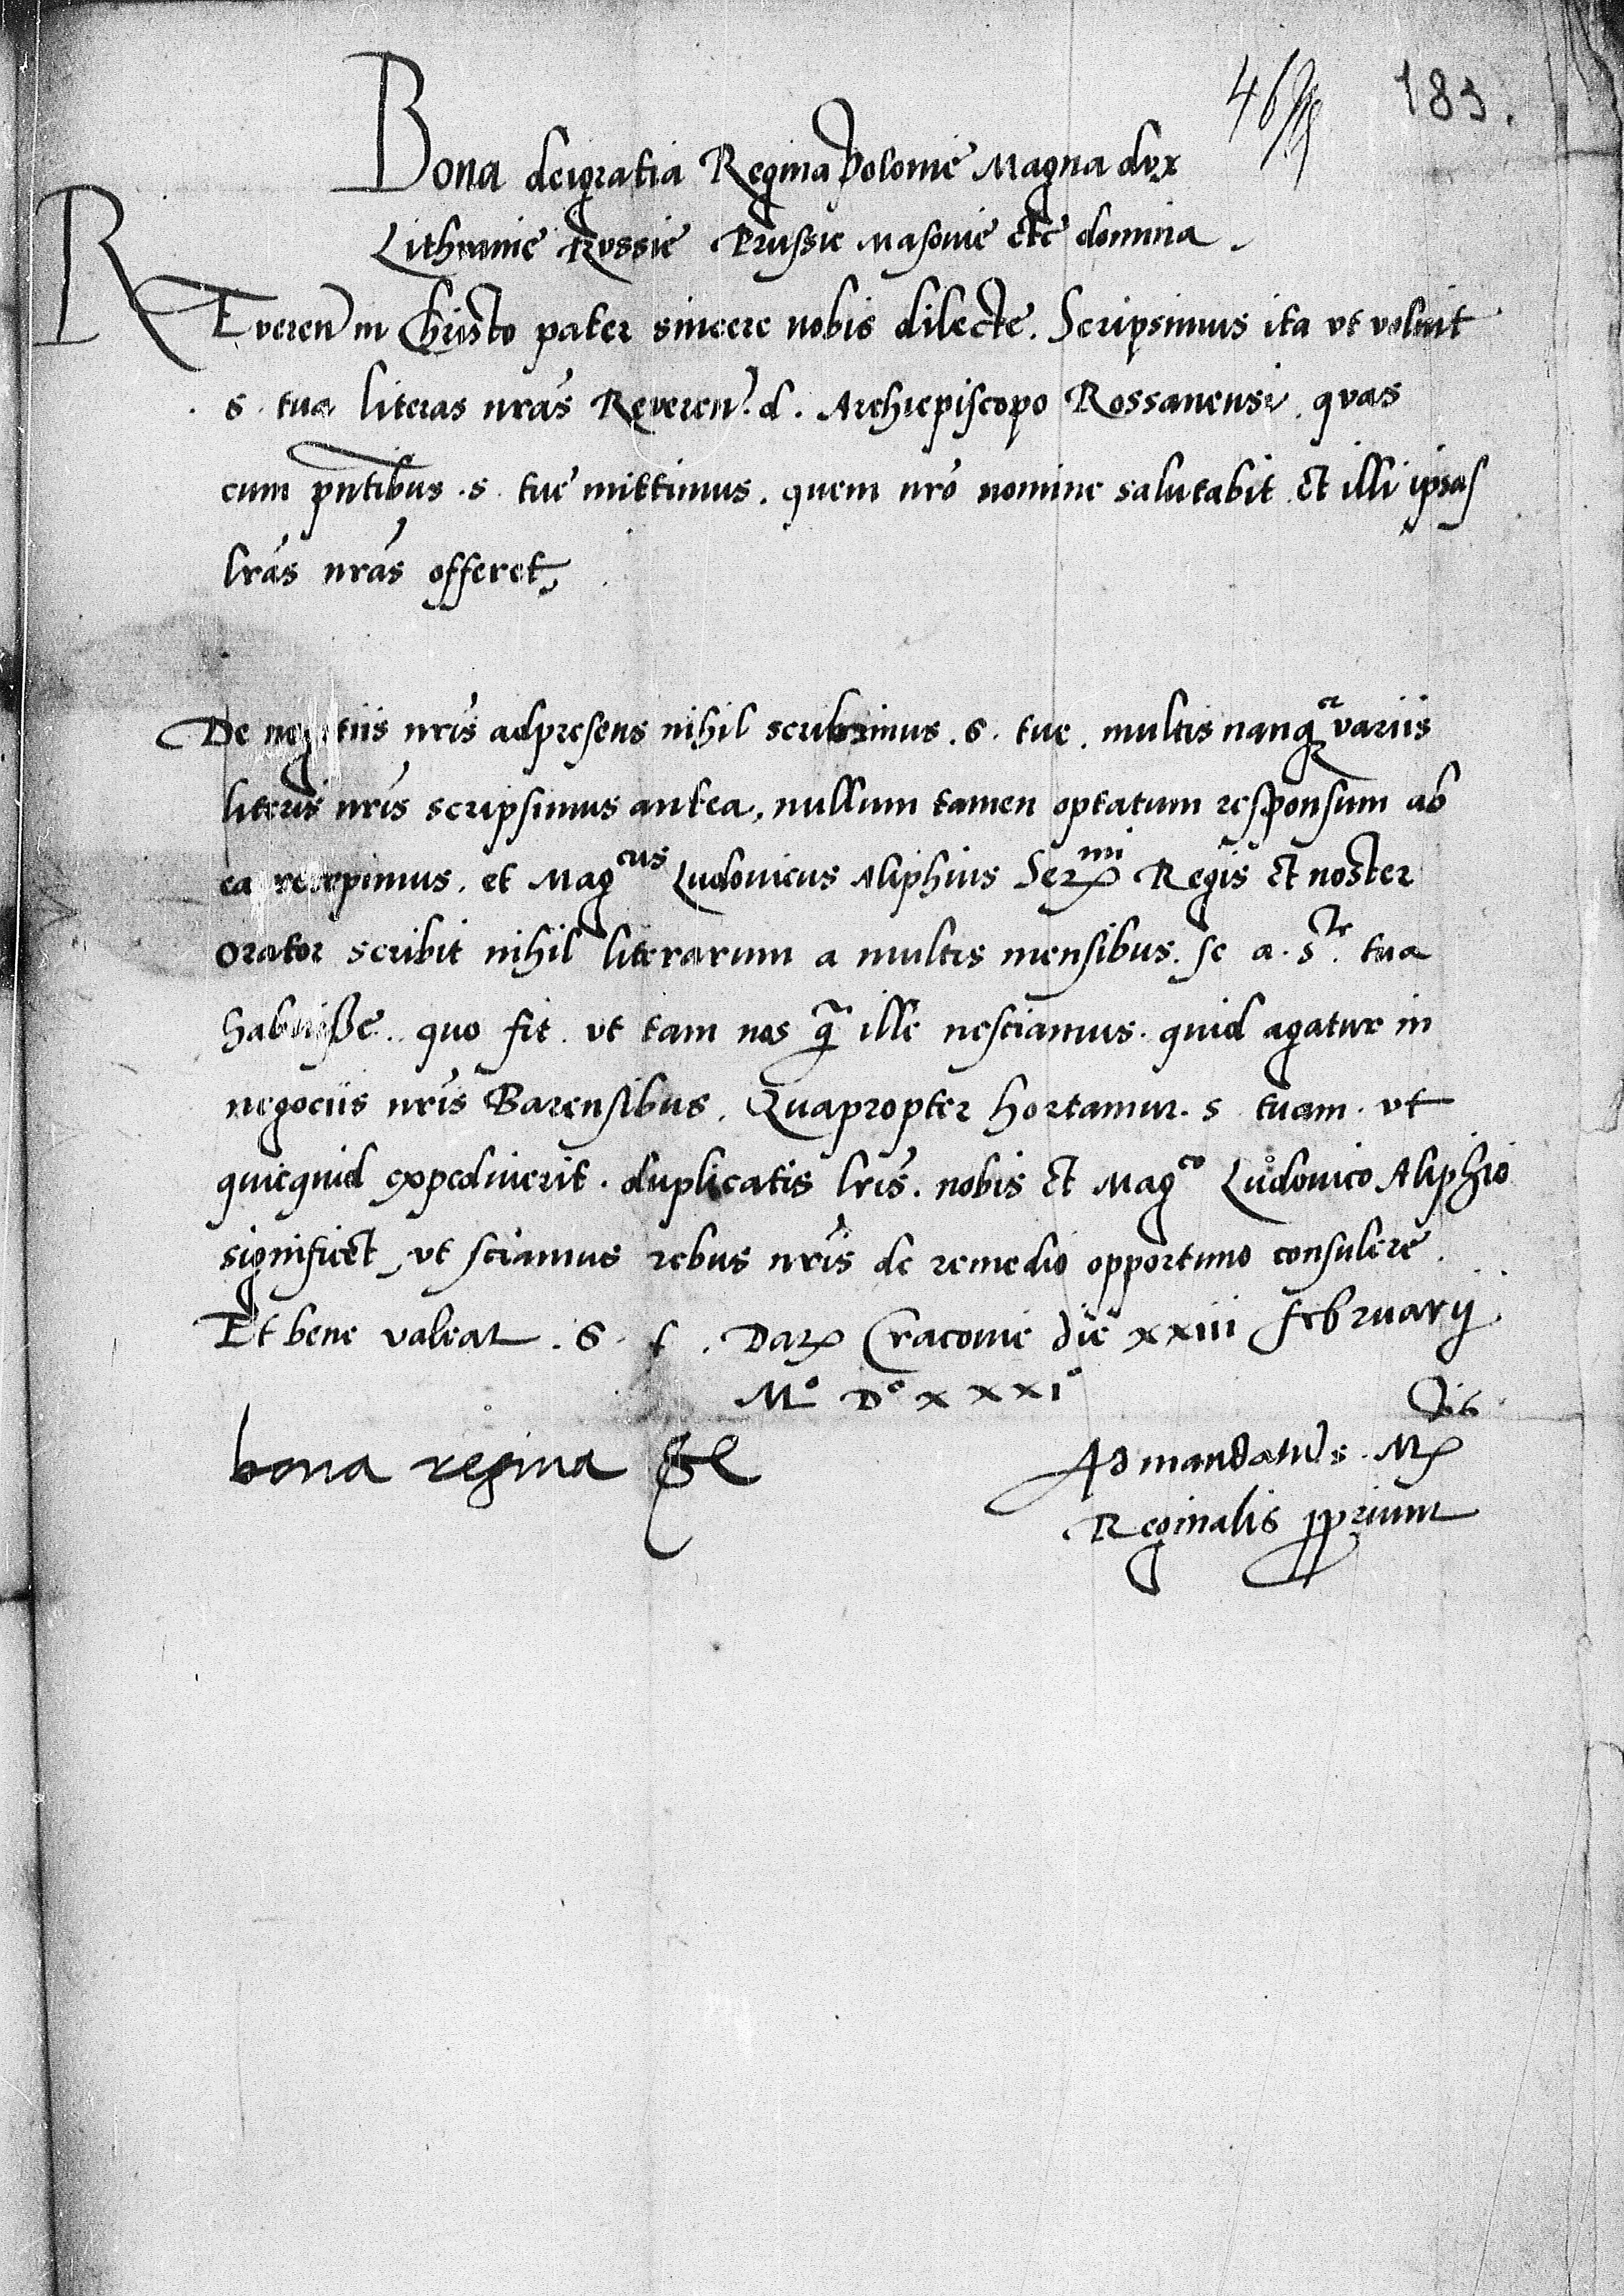 183.
Bona deigratia Regina Polonie Magna dvx
Lithuanie Rvssie Prussie Masovie etc domina.
REveren in Christo pater sincere nobis dilecte. Scripsimus ita vt voluit
s. tua literas nras Reveren. d. Archiepiscopo Rossanensi. qvas
cum pntibus .s. tue mittimus. quem nro nomine salutabit et illi ipsas
lras nras offeret,
De negotiis nris adpresens nihil scribimus .S. tue. multis nanq et variis
literis nris scripsimus antea, nullum tamen optatum responsum ab
ea recepimus. et Magcus Ludovicus Aliphius Sermi Regis et noster
orator scribit nihil literarum a multis mensibus. se a. Ste. tua
habuisse. quo fit. vt tam nos q̃ ille nesciamus. quid agatur in
negociis nris Barensibus. Quapropter hortamur. s. tvam. vt
quicquid expediverit. duplicatis lris. nobis et Magco Ludovico Aliphio
significet, vt sciamus rebus nris de remedio opportuno consulere.
Et bene valeat. S. t. Dat Cracovie die xxiii februarij
Mº Dº xxxiº
bona regina
Ad mandatu s. M
Reginalis pprium